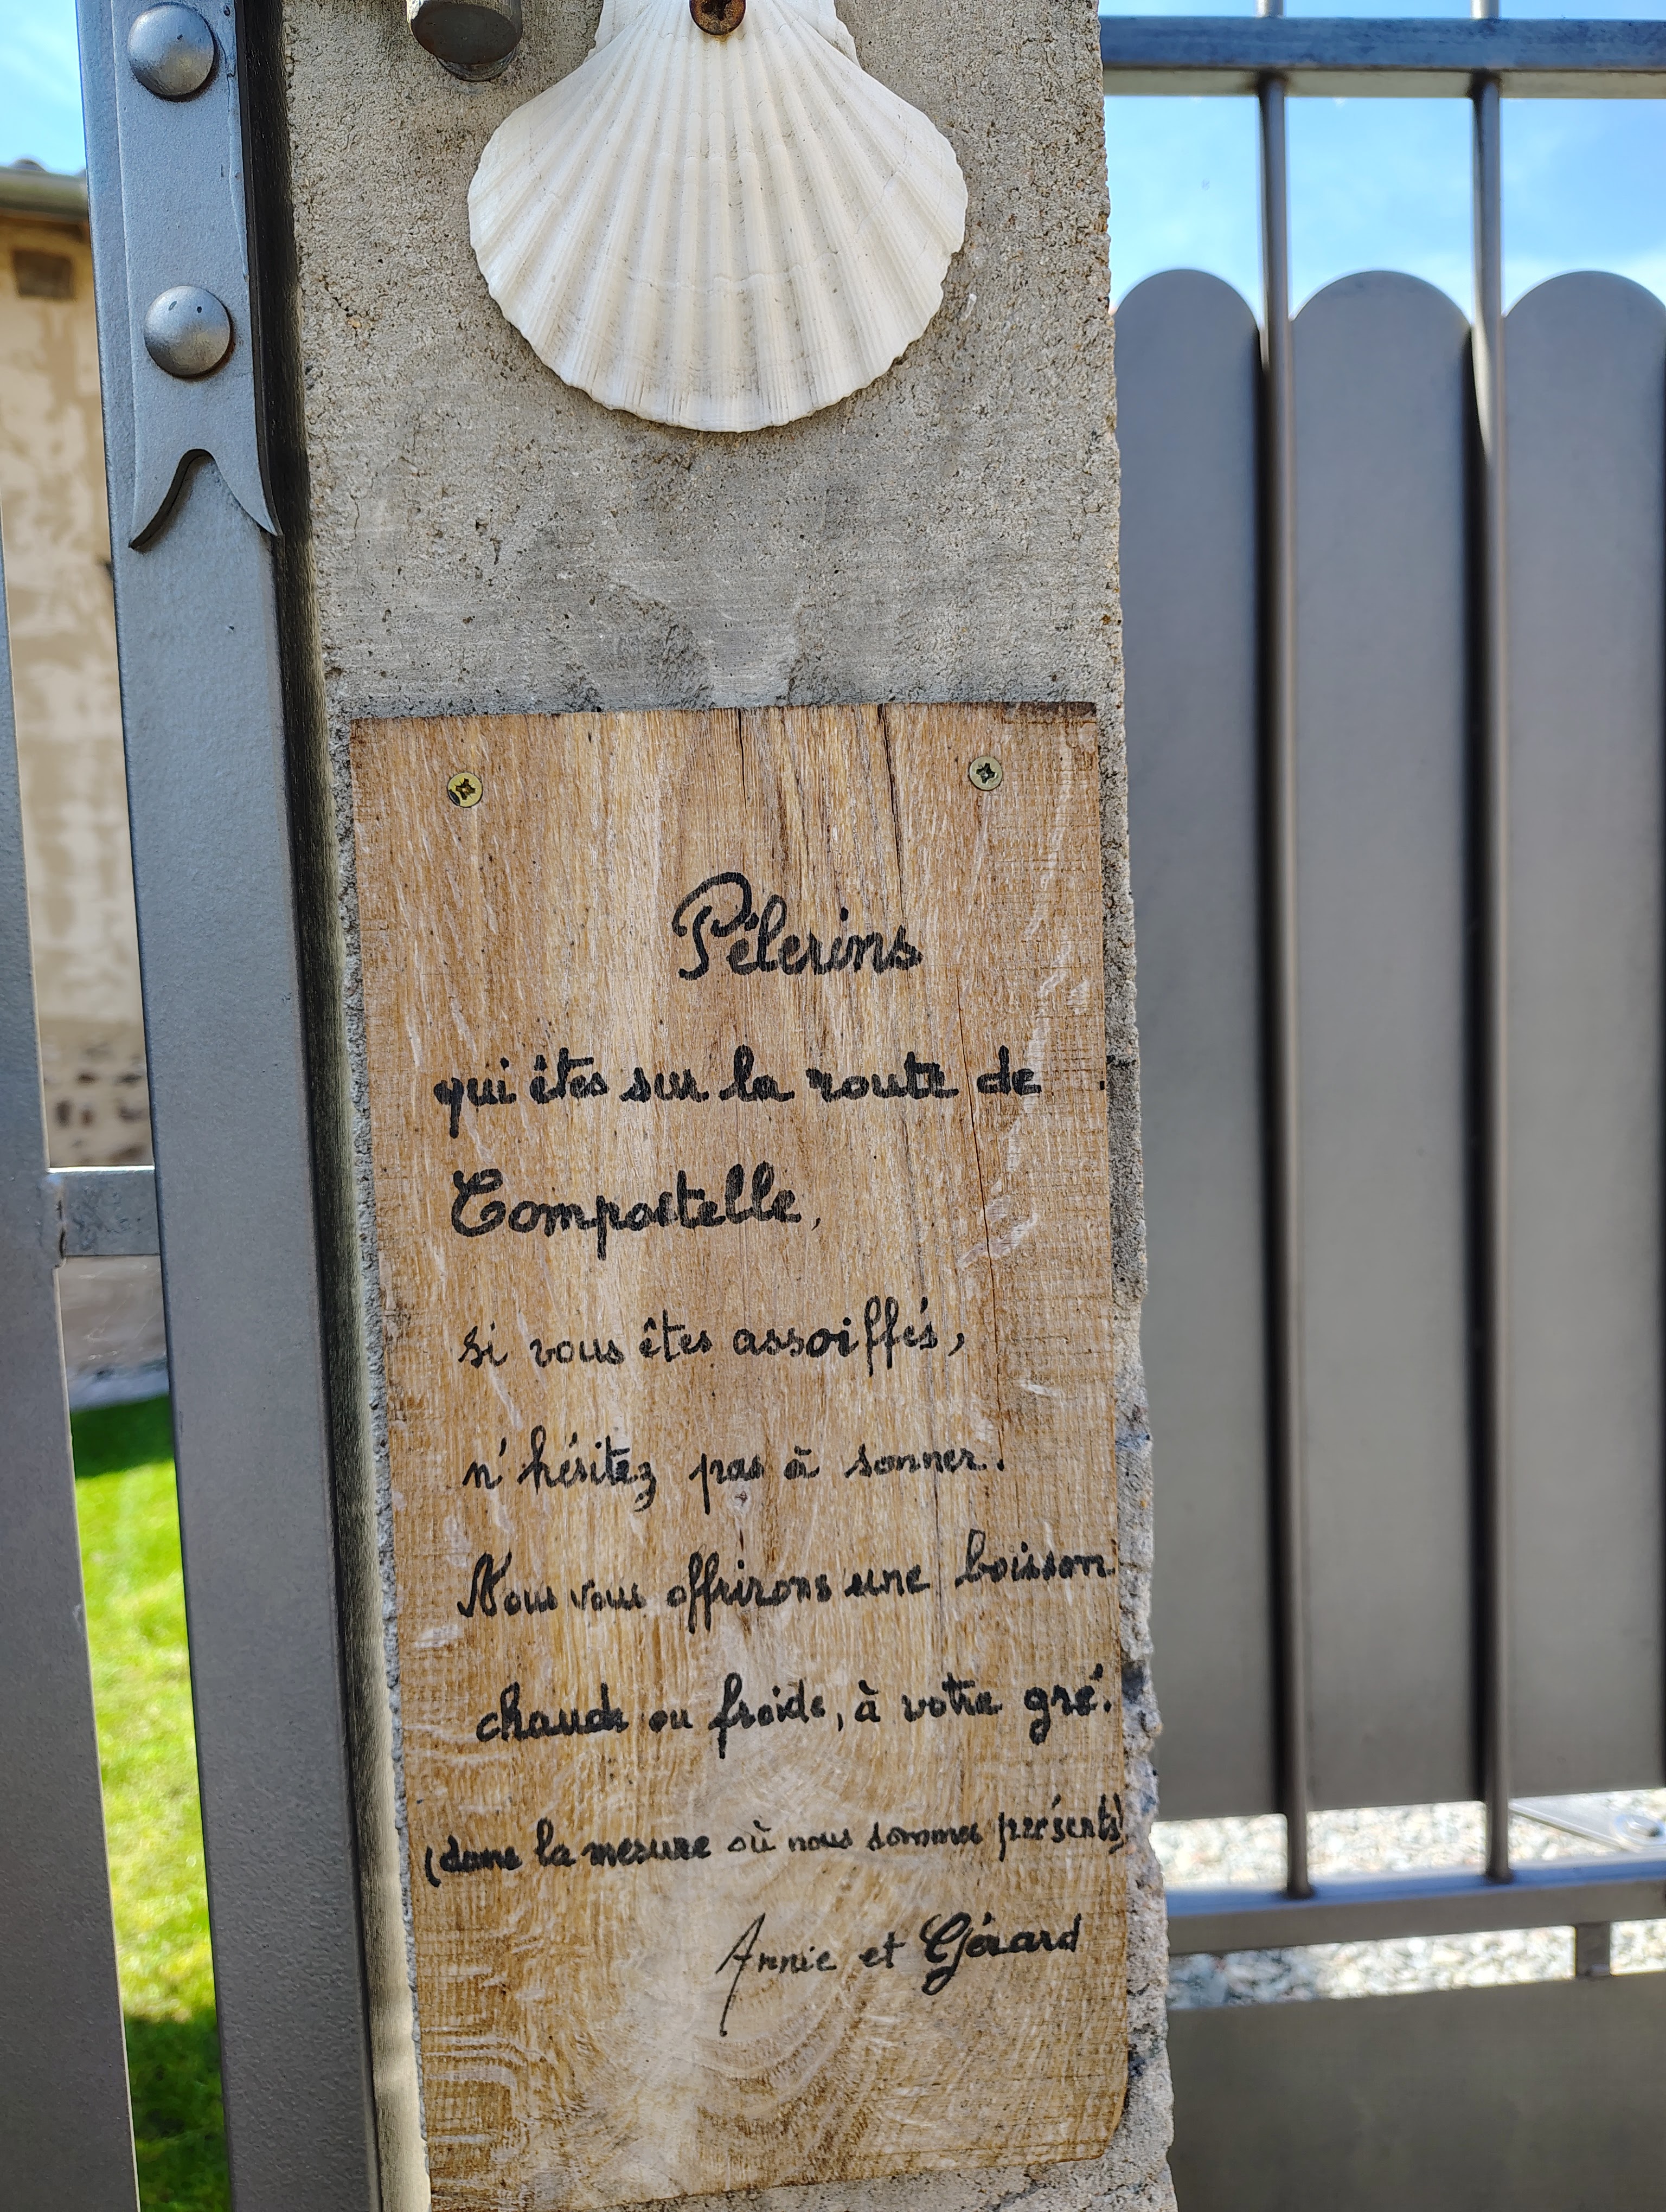 Pélerins
qui êtes sur la route de
Compostelle,
si vous êtes assoiffés,
n'hésitez pas à sonner.
Nous vous offrirons une boisson
chaude ou froide, à votre gré.
(dans la mesure où nous sommes présents)
Annie et Gérard